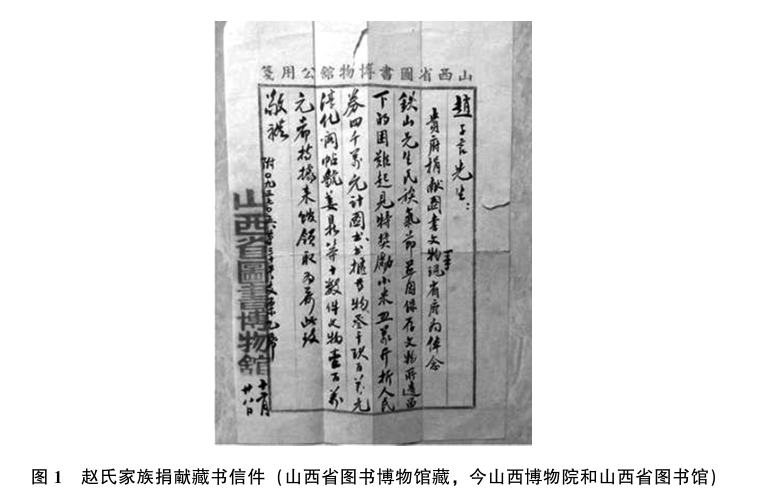 山西省圖書博物館公用箋
趙子言先生：
貴府捐献圖書文物一事現省府为念
鉄山先生民族氣節并因保存文物所遭
下的困難起見特奖勵小米五萬斤折人民
券四千萬元計圖书书櫃等物叁千玖百萬元
淳化阁帖虢姜鼎等十数件文物壹百萬
元希持據来館領取为荷此致
敬禮
山西省圖書博物館
十一月
廿八日
图 1 赵氏家族捐献藏书信件（山西省图书博物馆藏，今山西博物院和山西省图书馆）